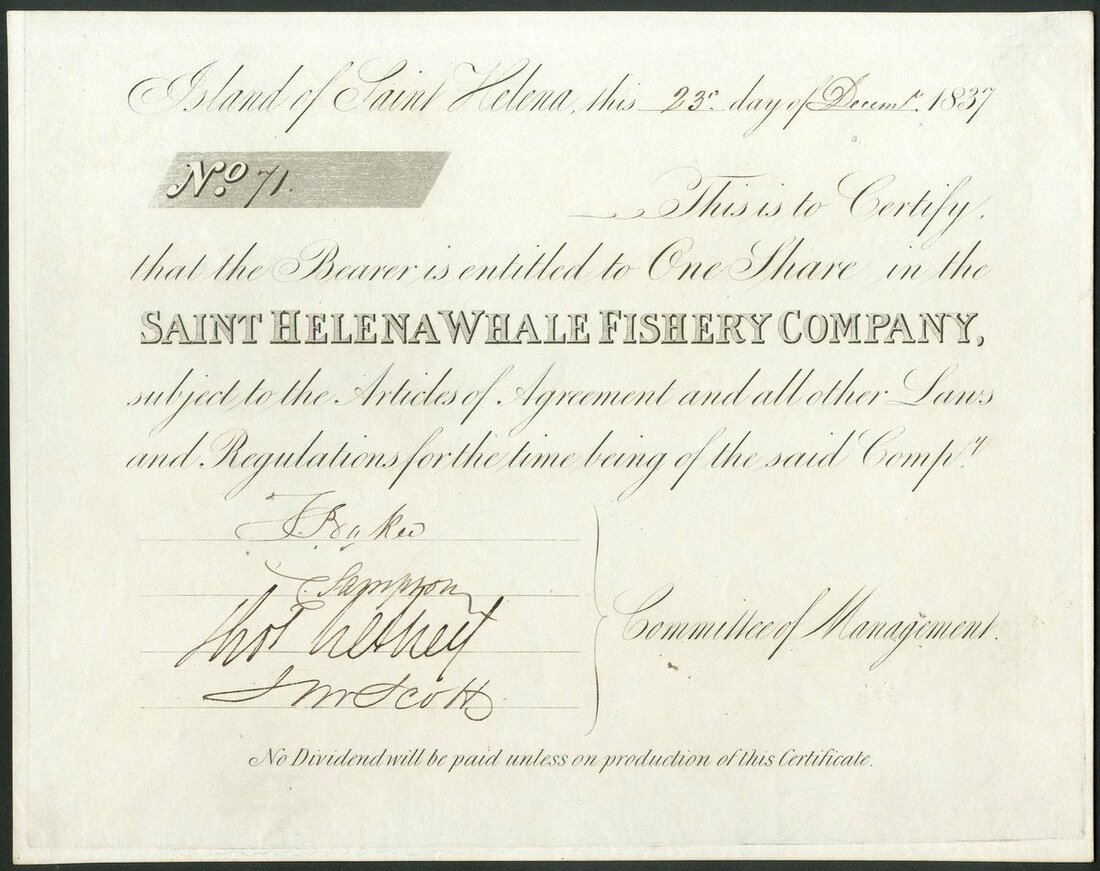 Island of Saint Helena, this 23 day of Decemr. 1837
No. 71.
This is to Certify,
that the Bearer is entitled to One Share in the
SAINT HELENA WHALE FISHERY COMPANY,
subject to the Articles of Agreement and all other Laws
and Regulations for the time being of the said Compy.
Baker
Sampson
Thos
Scott
Committee of Management.
No Dividend will be paid unless on production of this Certificate.